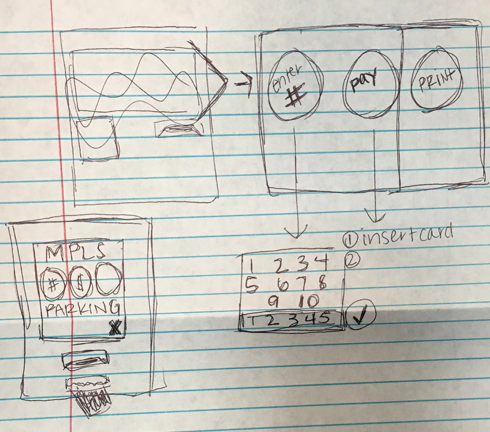 enter
#
pay
PRINT
① insert card
②
1 2 3 4
5 6 7 8
9 10
1 2 3 4 5 ✓
MPLS
# $
PARKING
X